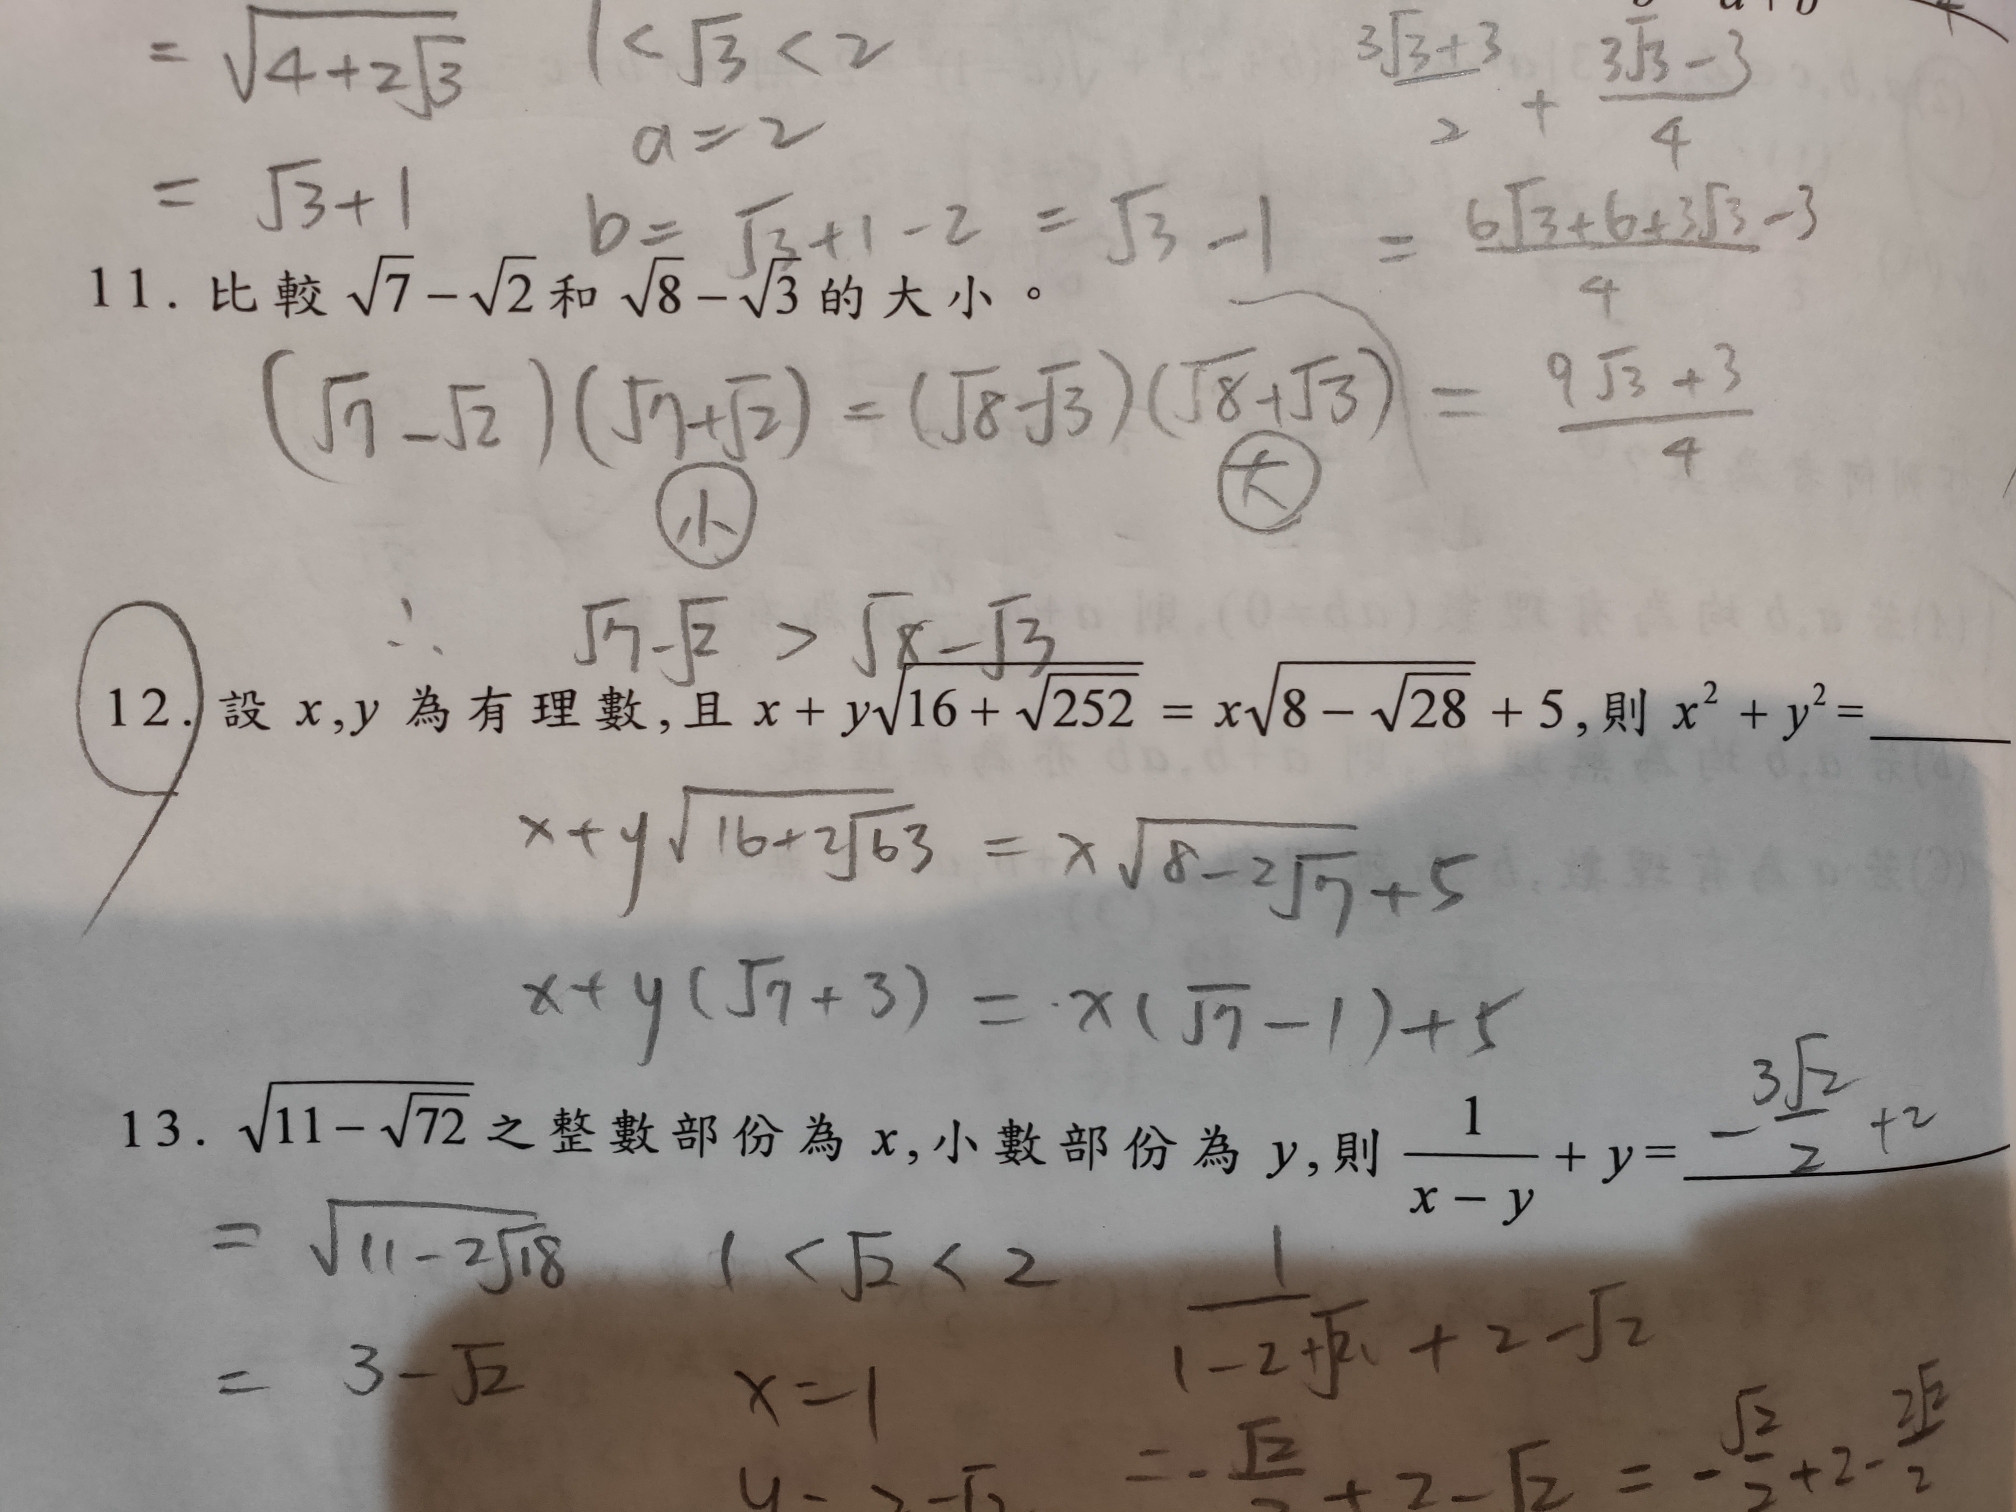 = √(4+2√3)  1 < √3 < 2  (3√3+3)/2 + (3√3-3)/4
a = 2
= √3+1  b = √3+1-2 = √3-1  = (6√3+6+3√3-3)/4
11. 比較 √7-√2 和 √8-√3 的大小。
(√7-√2)(√7+√2) = (√8-√3)(√8+√3)  = (9√3+3)/4
小  大
∴ √7-√2 > √8-√3
12. 設 x,y 為有理數,且 x + y√(16+√252) = x√(8-√28) + 5,則 x² + y² = ____
x+y√(16+2√63) = x√(8-2√7)+5
x+y(√7+3) = x(√7-1)+5
13. √(11-√72) 之整數部份為 x,小數部份為 y,則 1/(x-y) + y = -3√2/2 +2
= √(11-2√18)  1 < √2 < 2  1/(1-2+√2) + 2-√2
= 3-√2  x=1
y=2-√2  = -√2/2 + 2-√2 = -√2/2 +2- 2√2/2